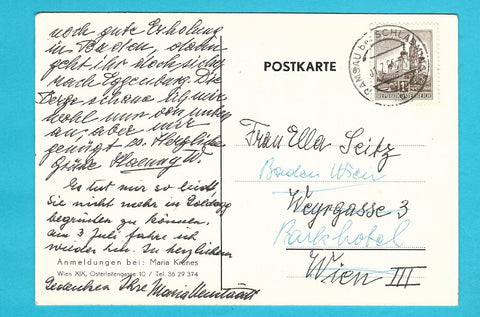 noch gute Erholung
in Baden, dann
geht ihr doch sicher
nach Eggenburg. Die
Berge schaue ich mir
wohl nur von unten
an, aber mir
genügt es. Herzliche
Grüße
Es tut mir so leid,
Sie nicht mehr in
begrüßen zu können.
am 3 Juli fahre ich
wieder hin. In herzlichem
Anmeldungen bei: Maria Krones
Wien XIX, Osterleitengasse 10 / Tel. 36 29 374
Gedenken Ihre Maria
POSTKARTE
RAMSAU b. SCHLADMING
REPUBLIK ÖSTERREICH
Frau Ella Seitz
Baden Wien
Weyrgasse 3
Parkhotel
Wien III